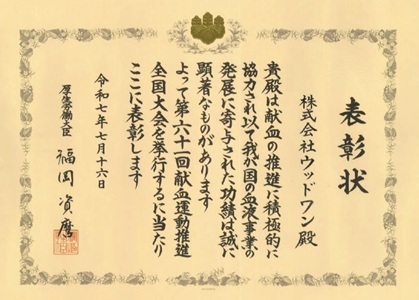 表彰状
株式会社ウッドワン殿
貴殿は献血の推進に積極的に
協力され以て我が国の血液事業の
発展に寄与された功績は誠に
顕著なものがあります
よって第六十一回献血運動推進
全国大会を挙行するに当たり
ここに表彰します
令和七年七月十六日
厚生労働大臣
福岡資麿